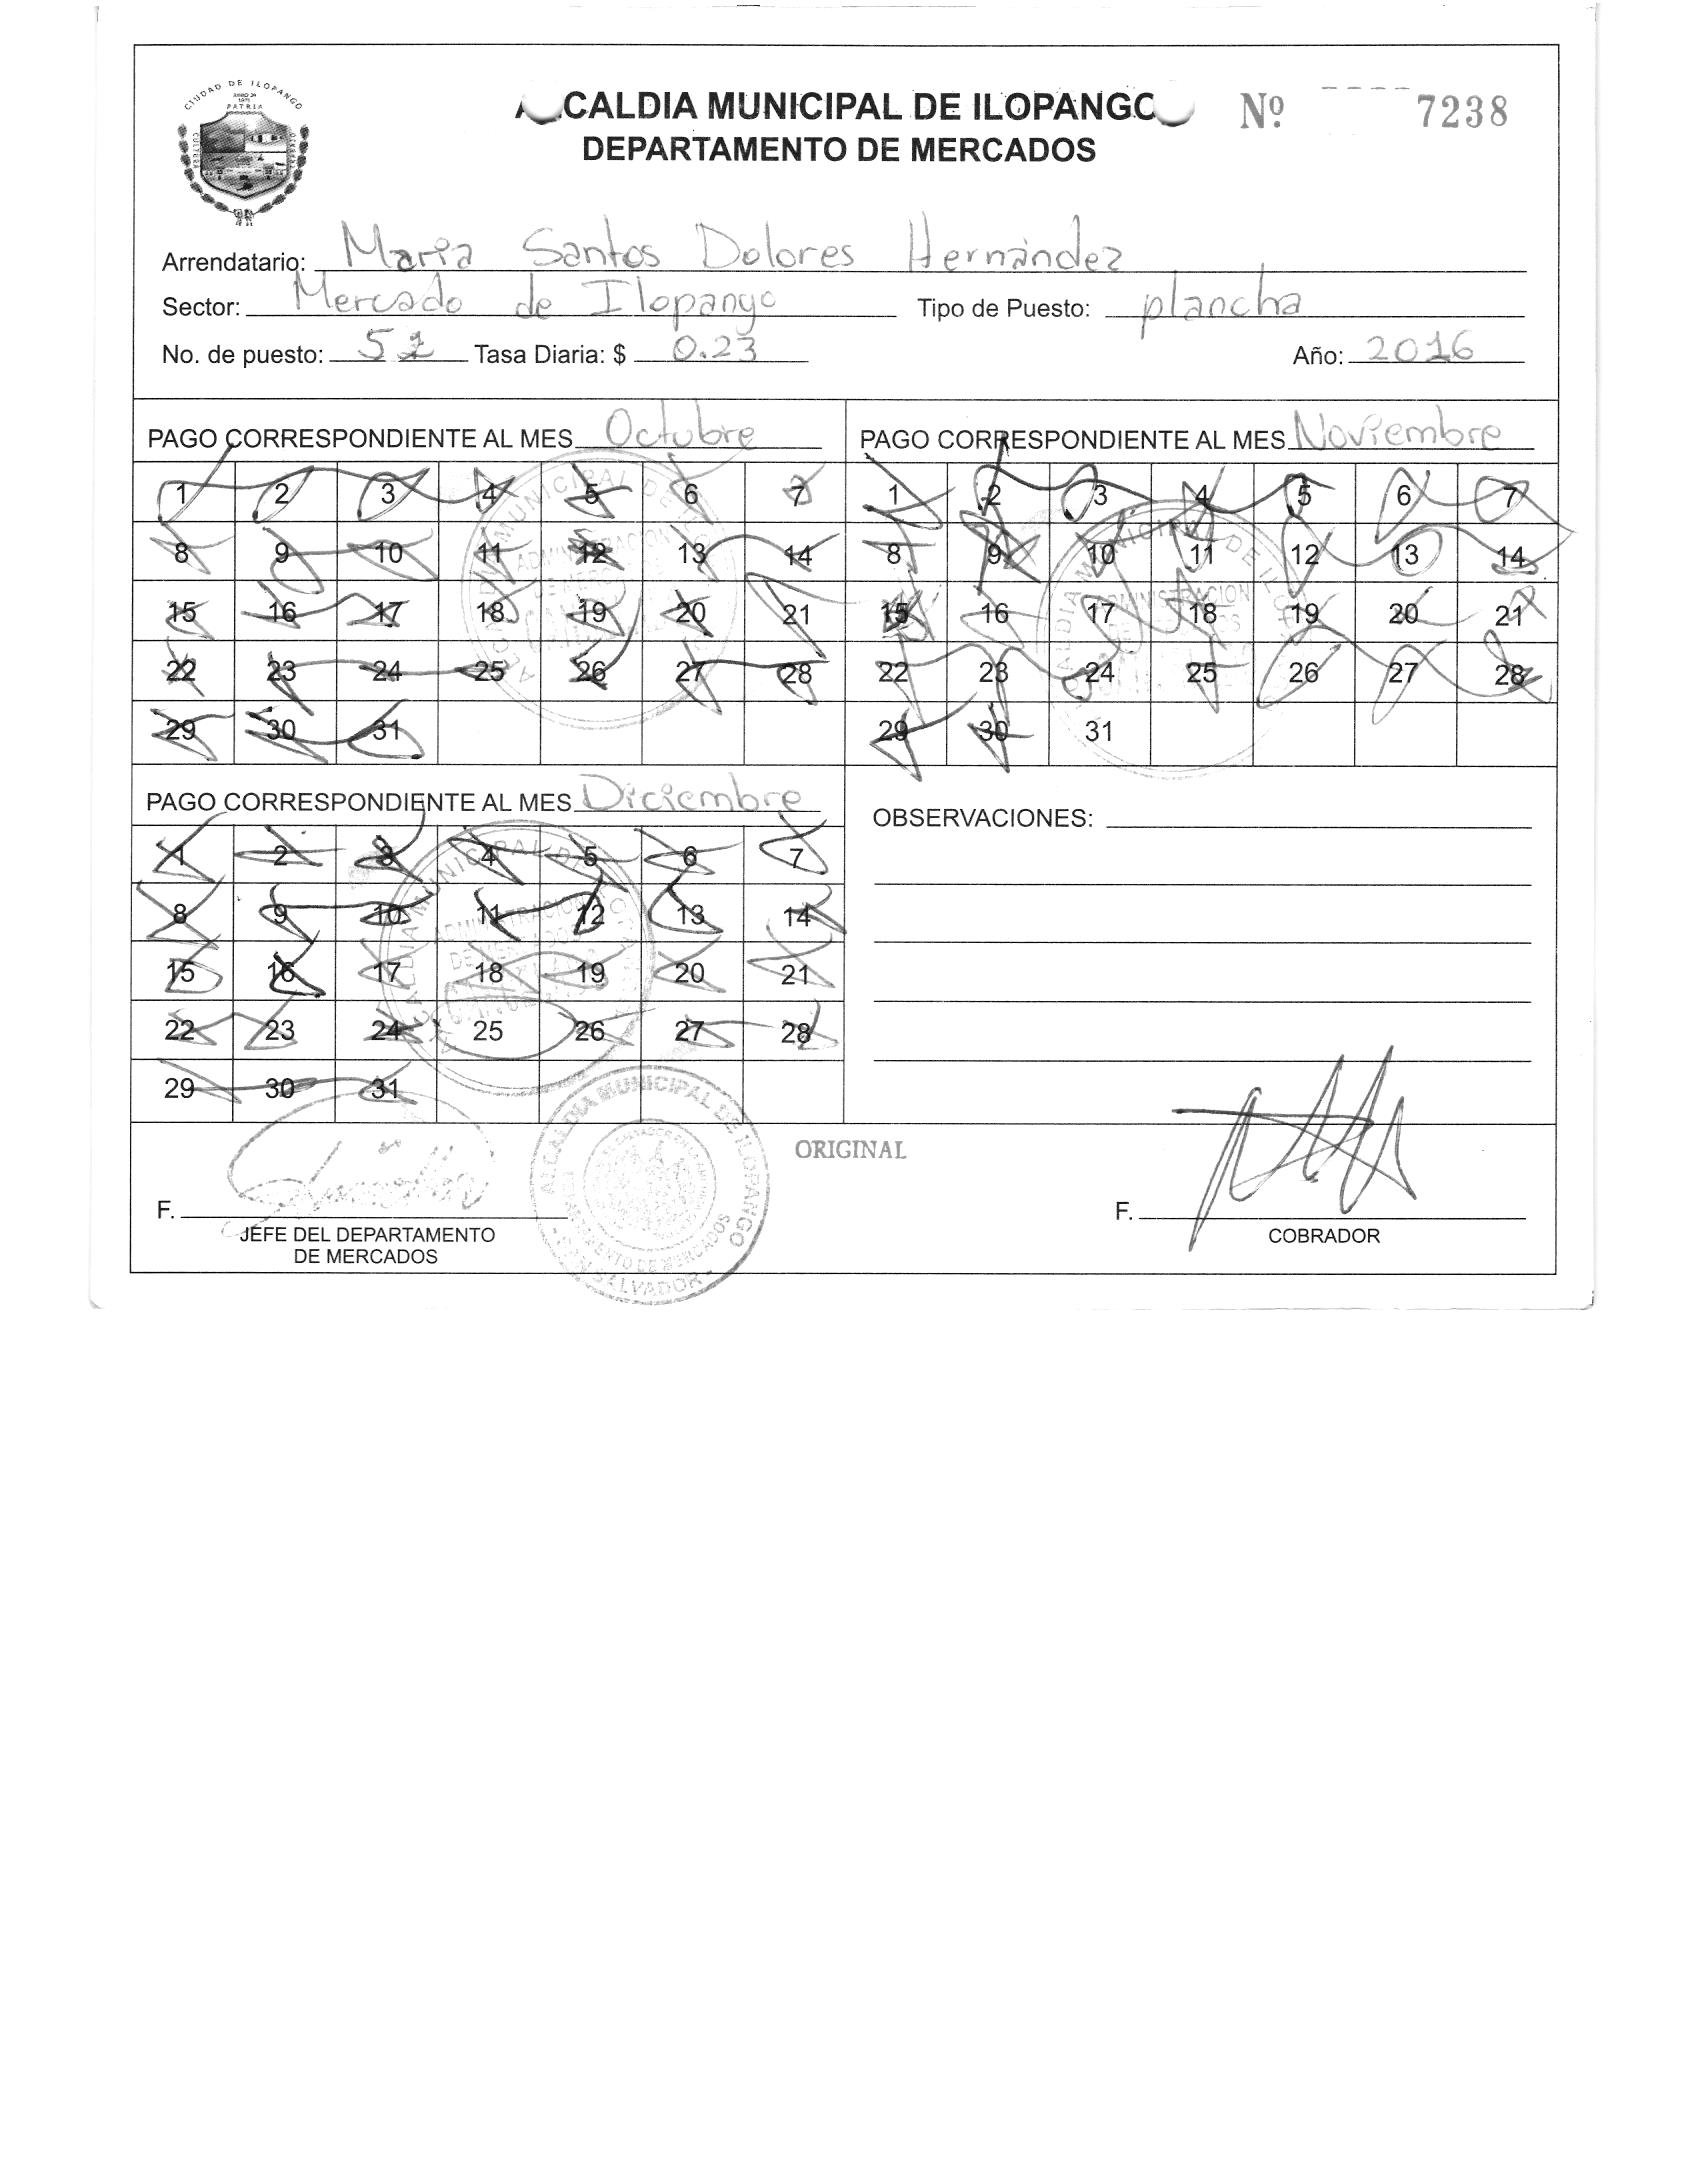 CIUDAD DE ILOPANGO
PATRIA
CULTURA
ALCALDIA MUNICIPAL DE ILOPANGO Nº 7238
DEPARTAMENTO DE MERCADOS
Arrendatario: Maria Santos Dolores Hernández
Sector: Mercado de Ilopango Tipo de Puesto: plancha
No. de puesto: 52 Tasa Diaria: $ 0.23 Año: 2016
PAGO CORRESPONDIENTE AL MES Octubre
1 2 3 4 5 6 7
8 9 10 11 12 13 14
15 16 17 18 19 20 21
22 23 24 25 26 27 28
29 30 31
PAGO CORRESPONDIENTE AL MES Noviembre
1 2 3 4 5 6 7
8 9 10 11 12 13 14
15 16 17 18 19 20 21
22 23 24 25 26 27 28
29 30 31
PAGO CORRESPONDIENTE AL MES Diciembre
1 2 3 4 5 6 7
8 9 10 11 12 13 14
15 16 17 18 19 20 21
22 23 24 25 26 27 28
29 30 31
OBSERVACIONES:
ORIGINAL
F.
JEFE DEL DEPARTAMENTO
DE MERCADOS
ALCALDIA MUNICIPAL DE ILOPANGO
DEPARTAMENTO DE MERCADOS
SAN SALVADOR
F.
COBRADOR